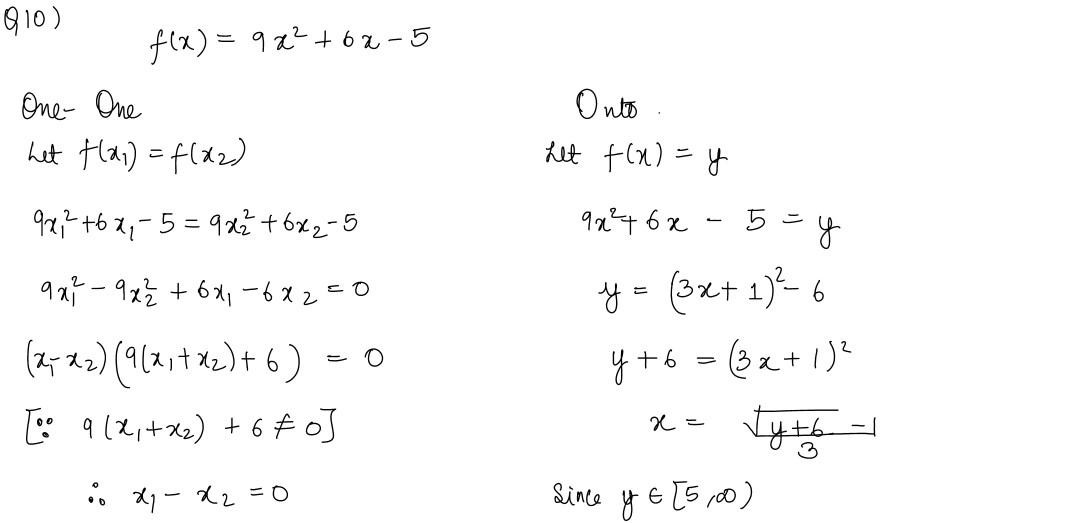 Q10)
f(x) = 9x² + 6x - 5
One-One
Let f(x₁) = f(x₂)
9x₁² + 6x₁ - 5 = 9x₂² + 6x₂ - 5
9x₁² - 9x₂² + 6x₁ - 6x₂ = 0
(x₁ - x₂)(9(x₁ + x₂) + 6) = 0
[∵ 9(x₁ + x₂) + 6 ≠ 0]
∴ x₁ - x₂ = 0
Onto.
Let f(x) = y
9x² + 6x - 5 = y
y = (3x + 1)² - 6
y + 6 = (3x + 1)²
x = (√(y + 6) - 1)/3
Since y ∈ [5, ∞)